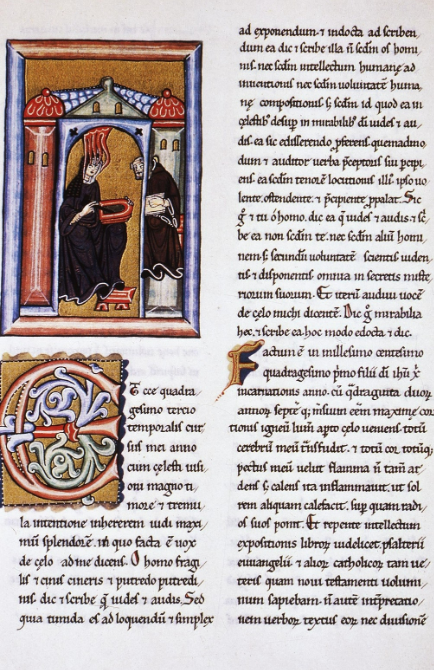 ET ecce quadra/
gesimo tercio
temporalis cur/
sus mei anno
cum cęlesti uisi/
oni magno ti/
more & tremu/
la intentione inhererem uidi maxi/
mū splendorē. in quo facta ē uox
de cęlo ad me dicens. O homo fragi/
lis & cinis cineris & putredo putredi/
nis. dic & scribe q̄ uides & audis. Sed
quia timida es ad loquendū & simplex
ad exponendum & indocta ad scriben/
dum ea dic & scribe illa ñ scdm os homi/
nis. nec scdm intellectum humanę ad
inuentionis nec scdm uoluntatē huma/
nę compositionis s; scdm id quod ea in
cęlestib; desup in mirabilib; di uides & au/
dis. ea sic edisserendo pferens. quemadmo
dum & auditor uerba pceptoris sui pcipi/
ens. ea scdm tenorē locutionis illi. ipso uo/
lente. ostendente. & pcipiente ppalat. Sic
g & tu ó homo. dic ea q̄ uides & audis. & sc/
be ea non scdm te. nec scdm aliū homi
nem s; secundū uoluntatē scientis uiden/
tis & disponentis omnia in secretis miste/
riorum suorum. Et iterū audiui uocē
de cęlo michi dicentē. Dic g mirabilia
hec. & scribe ea hoc modo edocta & dic.
Factum ē in millesimo centesimo
quadragesimo pmo filii di ihu x
incarnationis anno. cū q̄draginta duor
annor septē q; msuum eēm maxime cor
tionis igneū lum̄ apto cęlo ueniens. totū
cerebrū meū tnsfudit. & totū cor totūq;
pectus meū uelut flamma ñ tam̄ ar/
dens s; calens ita inflammauit. ut sol
rem aliquam calefacit. sup quam radi/
os suos ponit. Et repente intellectum
expositionis libror uidelicet psalterii
euuangelii & alior catholicor tam ue/
teris quam noui testamenti uolumi/
num sapiebam. ñ autē intpretatio/
nem uerbor textus eor nec diuisionē